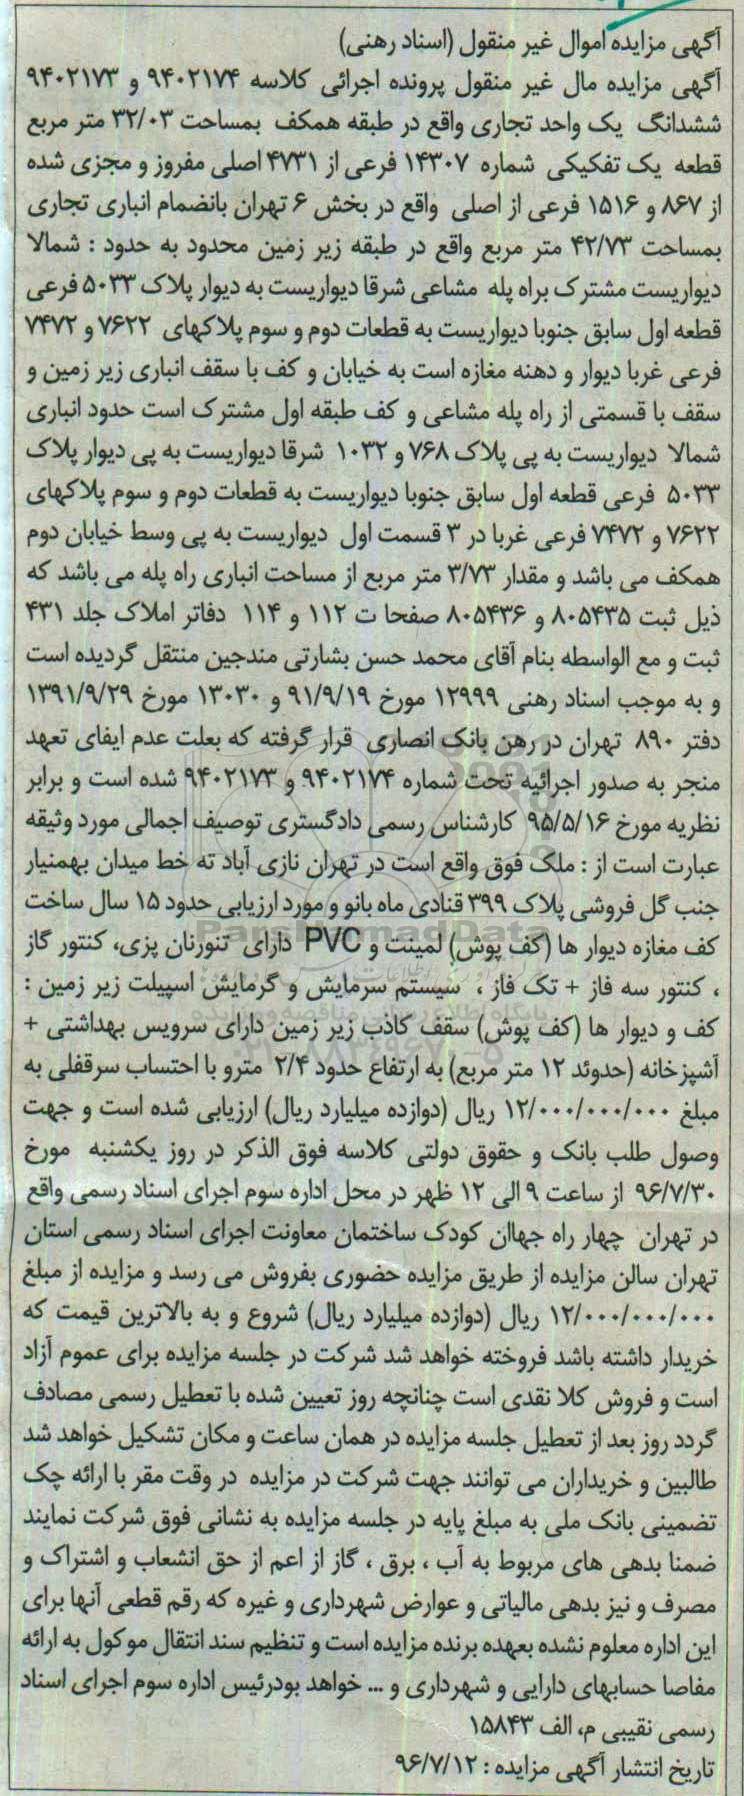 آگهی مزایده اموال غیر منقول (اسناد رهنی)
آگهی مزایده مال غیر منقول پرونده اجرائی کلاسه ۹۴۰۲۱۷۴ و ۹۴۰۲۱۷۳
ششدانگ یک واحد تجاری واقع در طبقه همکف بمساحت ۳۲/۰۳ متر مربع
قطعه یک تفکیکی شماره ۱۴۳۰۷ فرعی از ۴۷۳۱ اصلی مفروز و مجزی شده
از ۸۶۷ و ۱۵۱۶ فرعی از اصلی واقع در بخش ۶ تهران بانضمام انباری تجاری
بمساحت ۴۲/۷۳ متر مربع واقع در طبقه زیر زمین محدود به حدود : شمالا
دیواریست مشترک براه پله مشاعی شرقا دیواریست به دیوار پلاک ۵۰۳۳ فرعی
قطعه اول سابق جنوبا دیواریست به قطعات دوم و سوم پلاکهای ۷۶۲۲ و ۷۴۷۲
فرعی غربا دیوار و دهنه مغازه است به خیابان و کف با سقف انباری زیر زمین و
سقف با قسمتی از راه پله مشاعی و کف طبقه اول مشترک است حدود انباری
شمالا دیواریست به پی پلاک ۷۶۸ و ۱۰۳۲ شرقا دیواریست به پی دیوار پلاک
۵۰۳۳ فرعی قطعه اول سابق جنوبا دیواریست به قطعات دوم و سوم پلاکهای
۷۶۲۲ و ۷۴۷۲ فرعی غربا در ۳ قسمت اول دیواریست به پی وسط خیابان دوم
همکف می باشد و مقدار ۳/۷۳ متر مربع از مساحت انباری راه پله می باشد که
ذیل ثبت ۸۰۵۴۳۵ و ۸۰۵۴۳۶ صفحا ت ۱۱۲ و ۱۱۴ دفاتر املاک جلد ۴۳۱
ثبت و مع الواسطه بنام آقای محمد حسن بشارتی مندجین منتقل گردیده است
و به موجب اسناد رهنی ۱۲۹۹۹ مورخ ۹۱/۹/۱۹ و ۱۳۰۳۰ مورخ ۱۳۹۱/۹/۲۹
دفتر ۸۹۰ تهران در رهن بانک انصاری قرار گرفته که بعلت عدم ایفای تعهد
منجر به صدور اجرائیه تحت شماره ۹۴۰۲۱۷۴ و ۹۴۰۲۱۷۳ شده است و برابر
نظریه مورخ ۹۵/۵/۱۶ کارشناس رسمی دادگستری توصیف اجمالی مورد وثیقه
عبارت است از : ملک فوق واقع است در تهران نازی آباد ته خط میدان بهمنیار
جنب گل فروشی پلاک ۳۹۹ قنادی ماه بانو و مورد ارزیابی حدود ۱۵ سال ساخت
کف مغازه دیوار ها (کف پوش) لمینت و PVC دارای تنورنان پزی، کنتور گاز
، کنتور سه فاز + تک فاز ، سیستم سرمایش و گرمایش اسپیلت زیر زمین :
کف و دیوار ها (کف پوش) سقف کاذب زیر زمین دارای سرویس بهداشتی +
آشپزخانه (حدوئد ۱۲ متر مربع) به ارتفاع حدود ۲/۴ مترو با احتساب سرقفلی به
مبلغ ۱۲/۰۰۰/۰۰۰/۰۰۰ ریال (دوازده میلیارد ریال) ارزیابی شده است و جهت
وصول طلب بانک و حقوق دولتی کلاسه فوق الذکر در روز یکشنبه مورخ
۹۶/۷/۳۰ از ساعت ۹ الی ۱۲ ظهر در محل اداره سوم اجرای اسناد رسمی واقع
در تهران چهار راه جهاان کودک ساختمان معاونت اجرای اسناد رسمی استان
تهران سالن مزایده از طریق مزایده حضوری بفروش می رسد و مزایده از مبلغ
۱۲/۰۰۰/۰۰۰/۰۰۰ ریال (دوازده میلیارد ریال) شروع و به بالاترین قیمت که
خریدار داشته باشد فروخته خواهد شد شرکت در جلسه مزایده برای عموم آزاد
است و فروش کلا نقدی است چنانچه روز تعیین شده با تعطیل رسمی مصادف
گردد روز بعد از تعطیل جلسه مزایده در همان ساعت و مکان تشکیل خواهد شد
طالبین و خریداران می توانند جهت شرکت در مزایده در وقت مقر با ارائه چک
تضمینی بانک ملی به مبلغ پایه در جلسه مزایده به نشانی فوق شرکت نمایند
ضمنا بدهی های مربوط به آب ، برق ، گاز از اعم از حق انشعاب و اشتراک و
مصرف و نیز بدهی مالیاتی و عوارض شهرداری و غیره که رقم قطعی آنها برای
این اداره معلوم نشده بعهده برنده مزایده است و تنظیم سند انتقال موکول به ارائه
مفاصا حسابهای دارایی و شهرداری و ... خواهد بودرئیس اداره سوم اجرای اسناد
رسمی نقیبی م، الف ۱۵۸۴۳
تاریخ انتشار آگهی مزایده : ۹۶/۷/۱۲
ParsNamadData